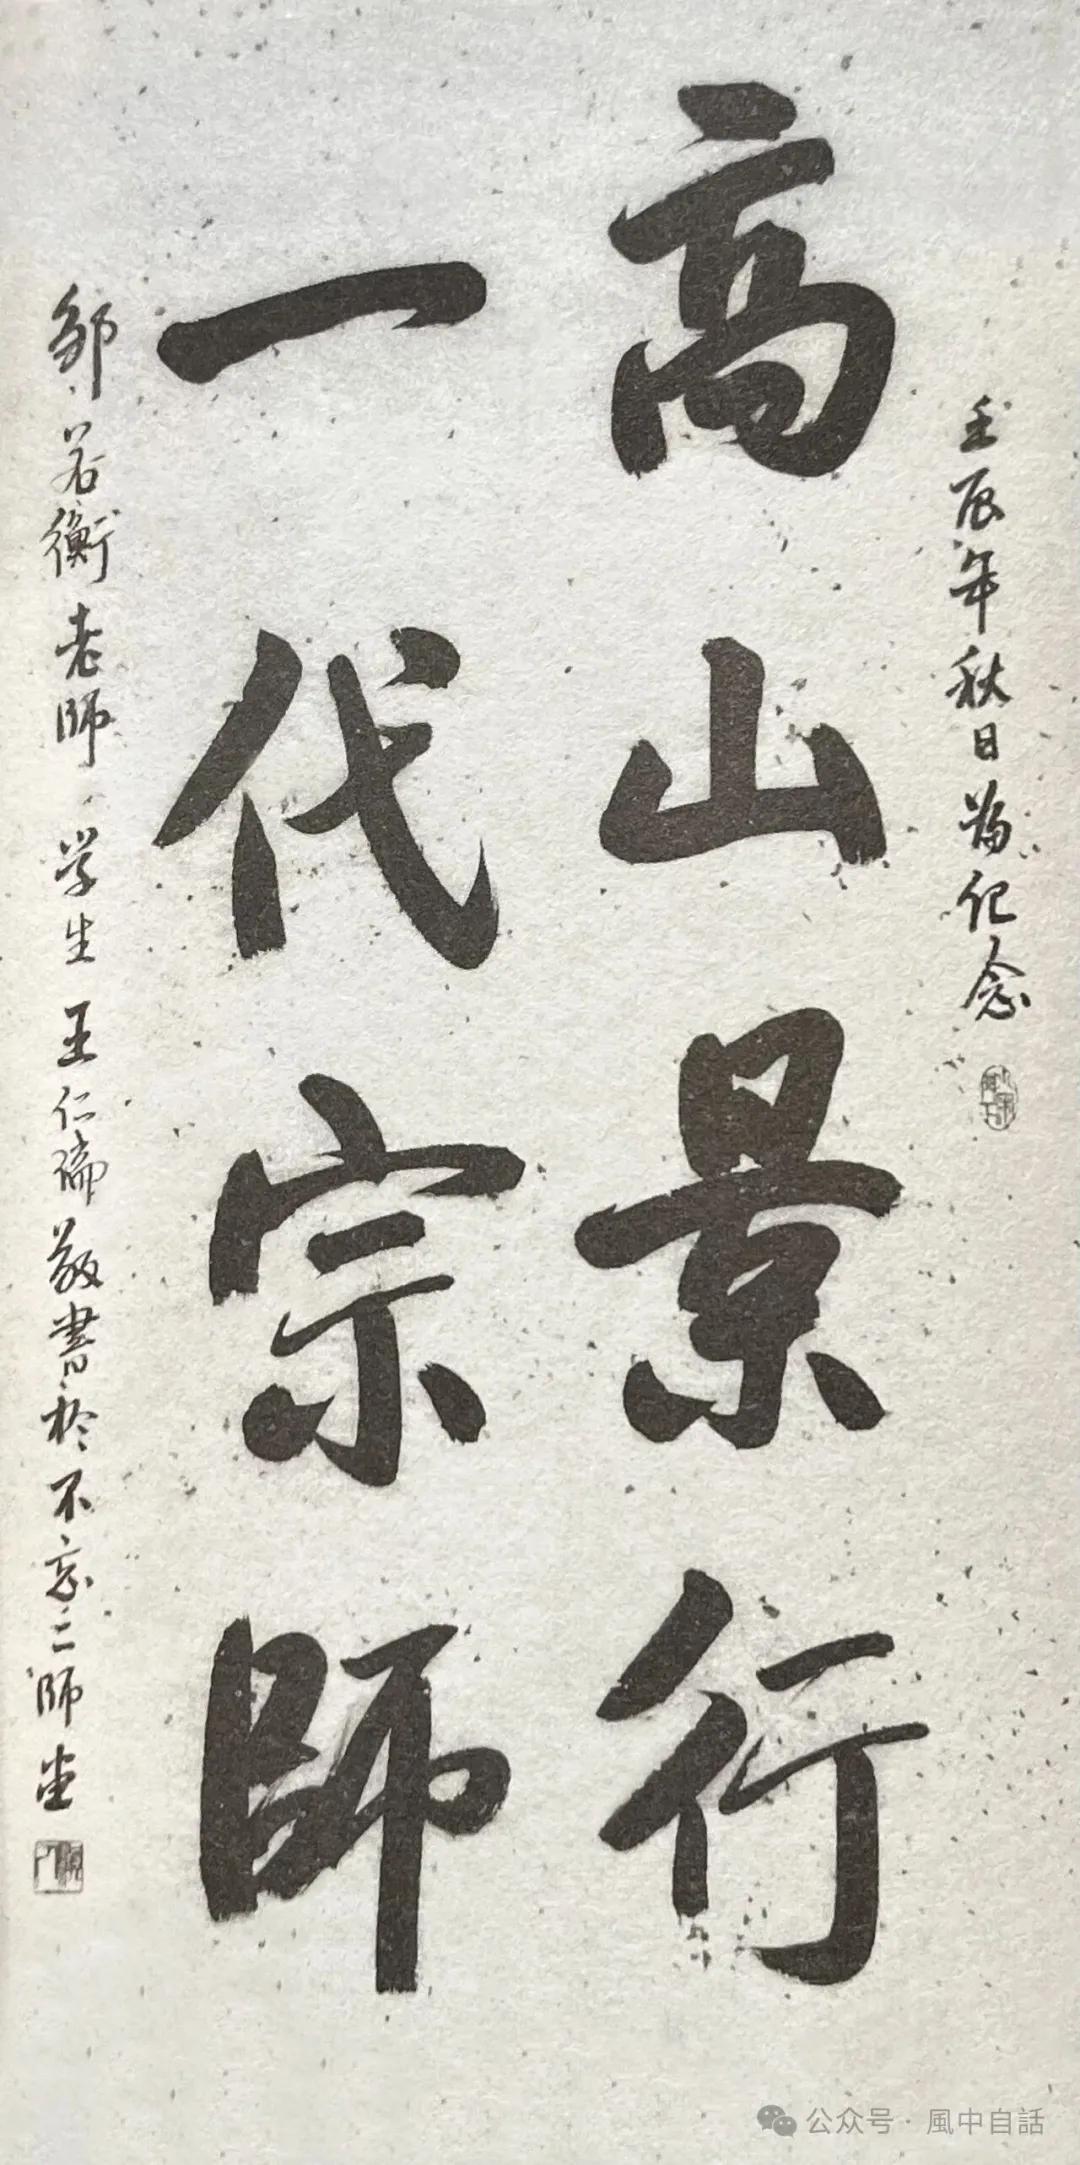 壬辰年秋日為纪念
高山景行
一代宗師
邹若衡老師 学生王仁 敬書於不忘二師堂
公众号 · 風中自話